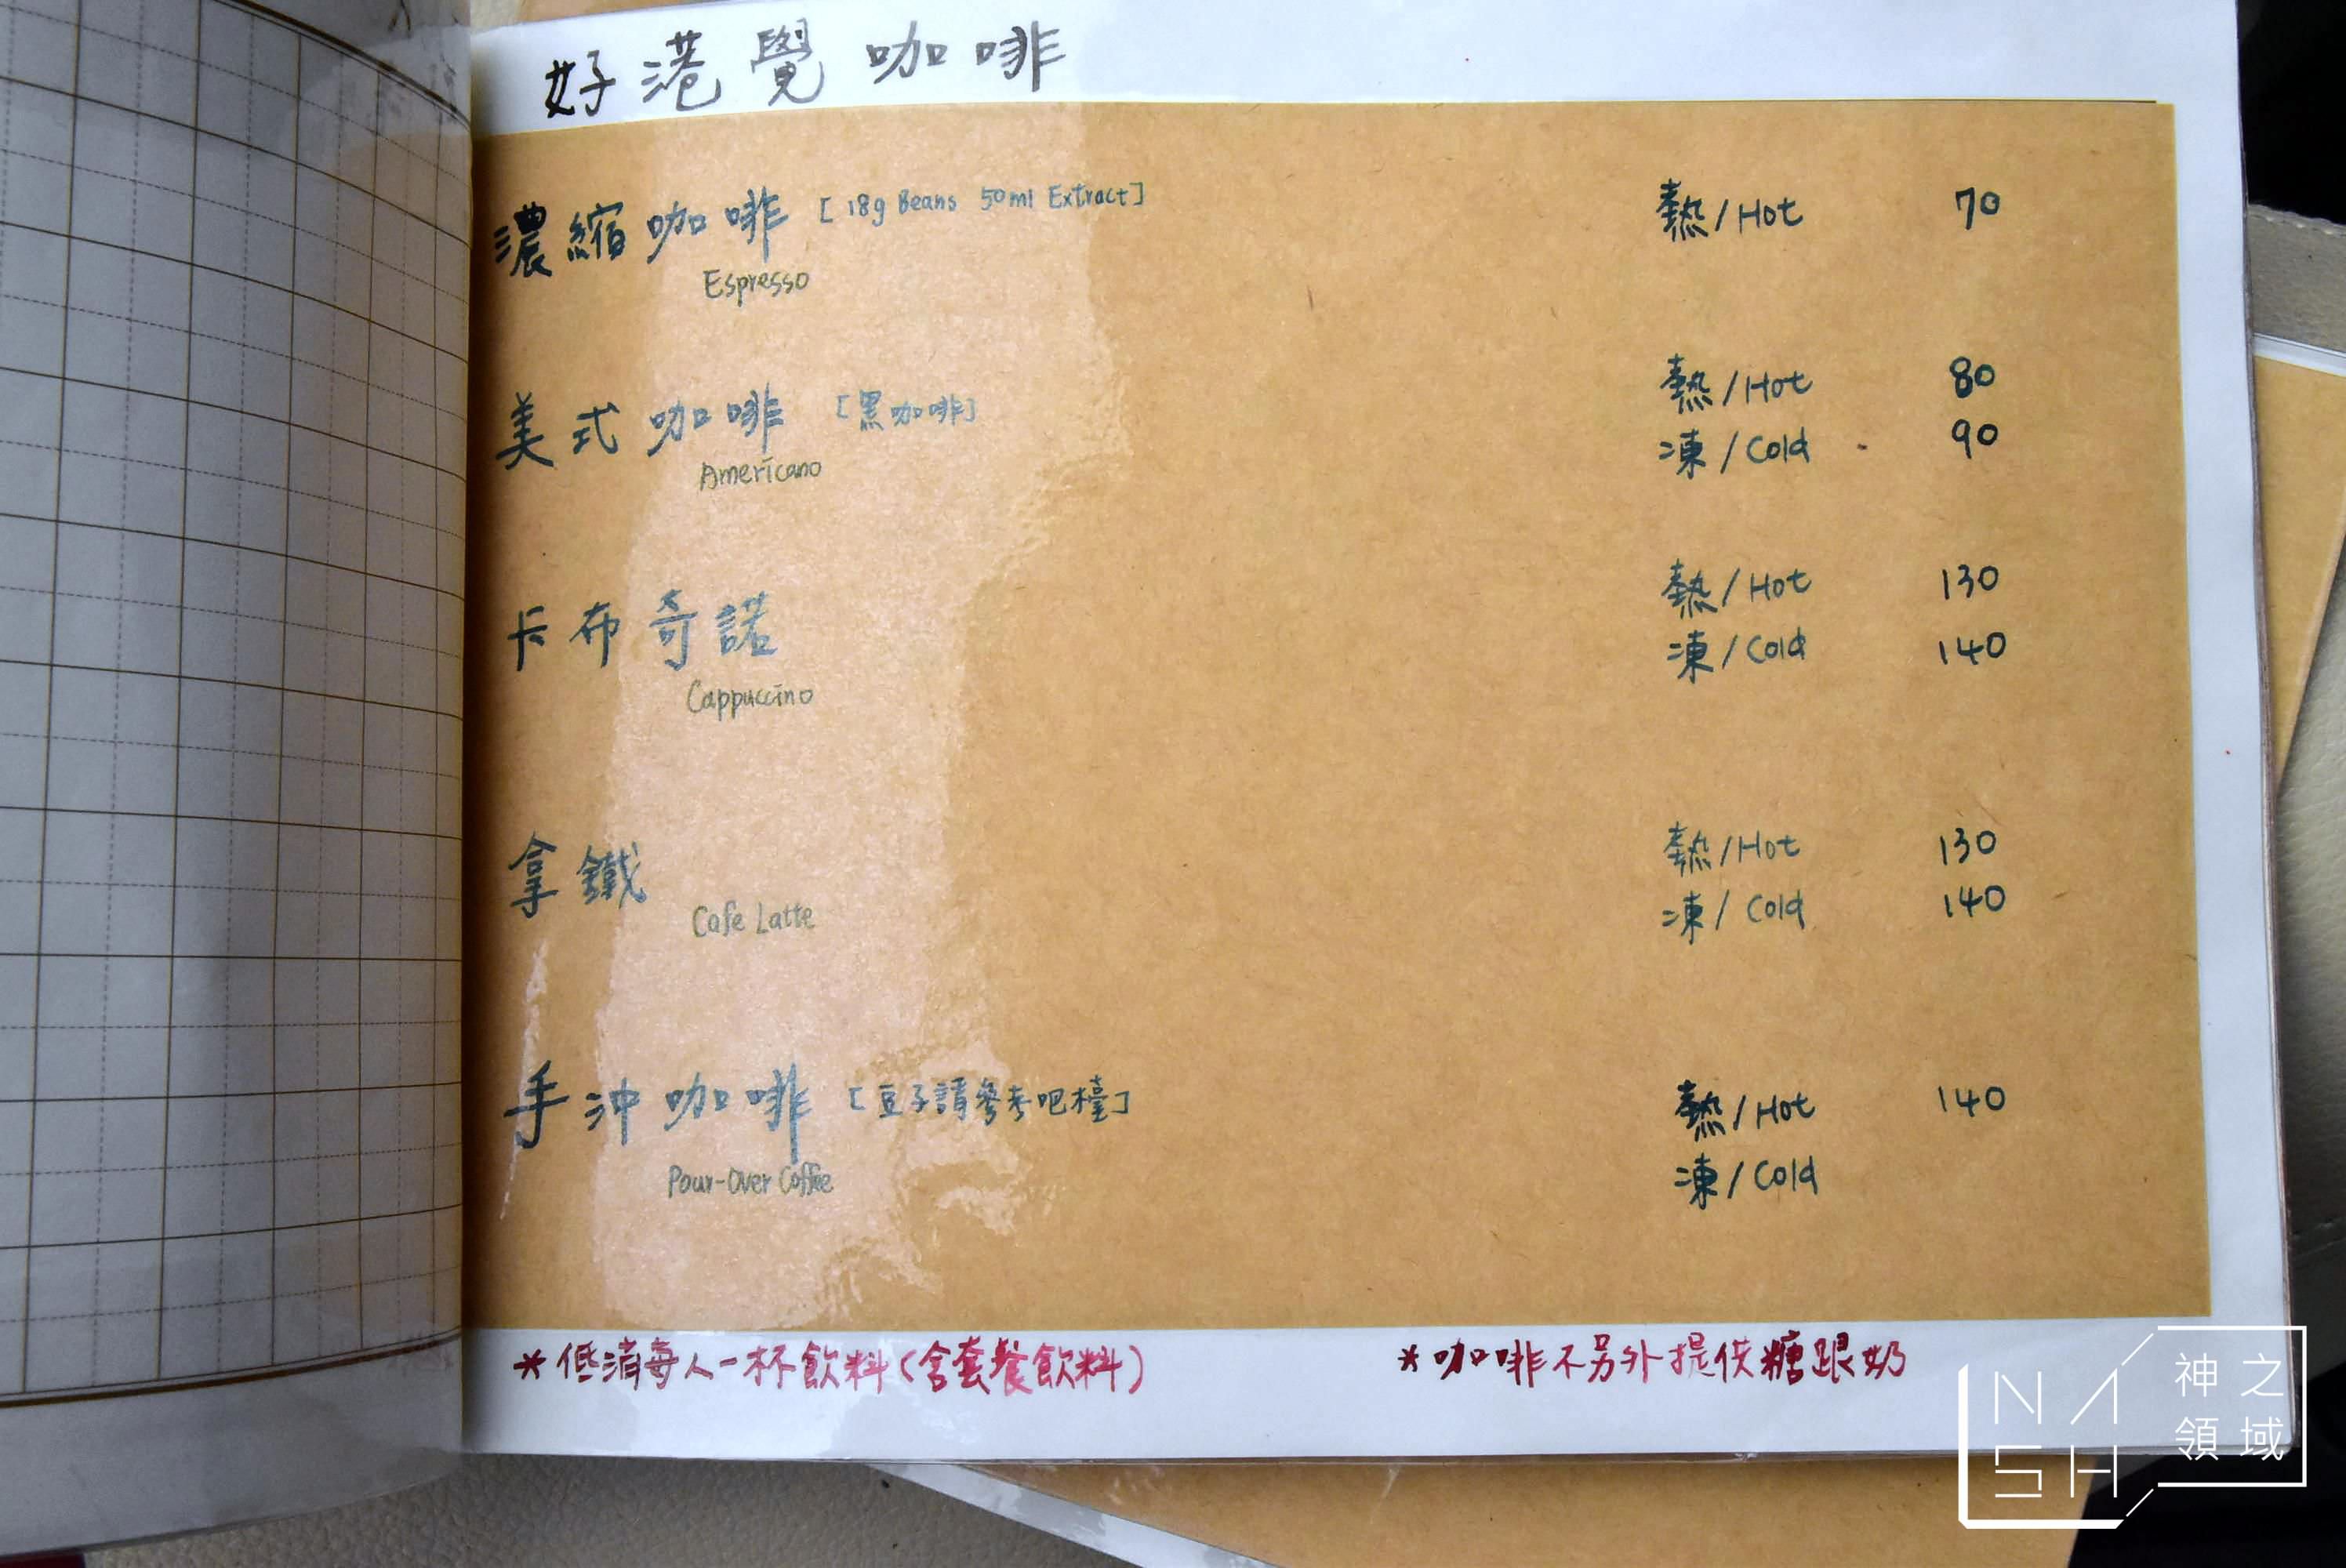 好港覺咖啡
濃縮咖啡 [18g Beans 50ml Extract] 熱/Hot 70
Espresso
美式咖啡 [黑咖啡] 熱/Hot 80
凍/Cold 90
Americano
卡布奇諾 熱/Hot 130
凍/Cold 140
Cappuccino
拿鐵 熱/Hot 130
凍/Cold 140
Cafe Latte
手沖咖啡 [豆子請參考吧檯] 熱/Hot 140
凍/Cold
Pour-Over Coffee
*低消每人一杯飲料(含套餐飲料) *咖啡不另外提供糖跟奶
NASH 神之領域